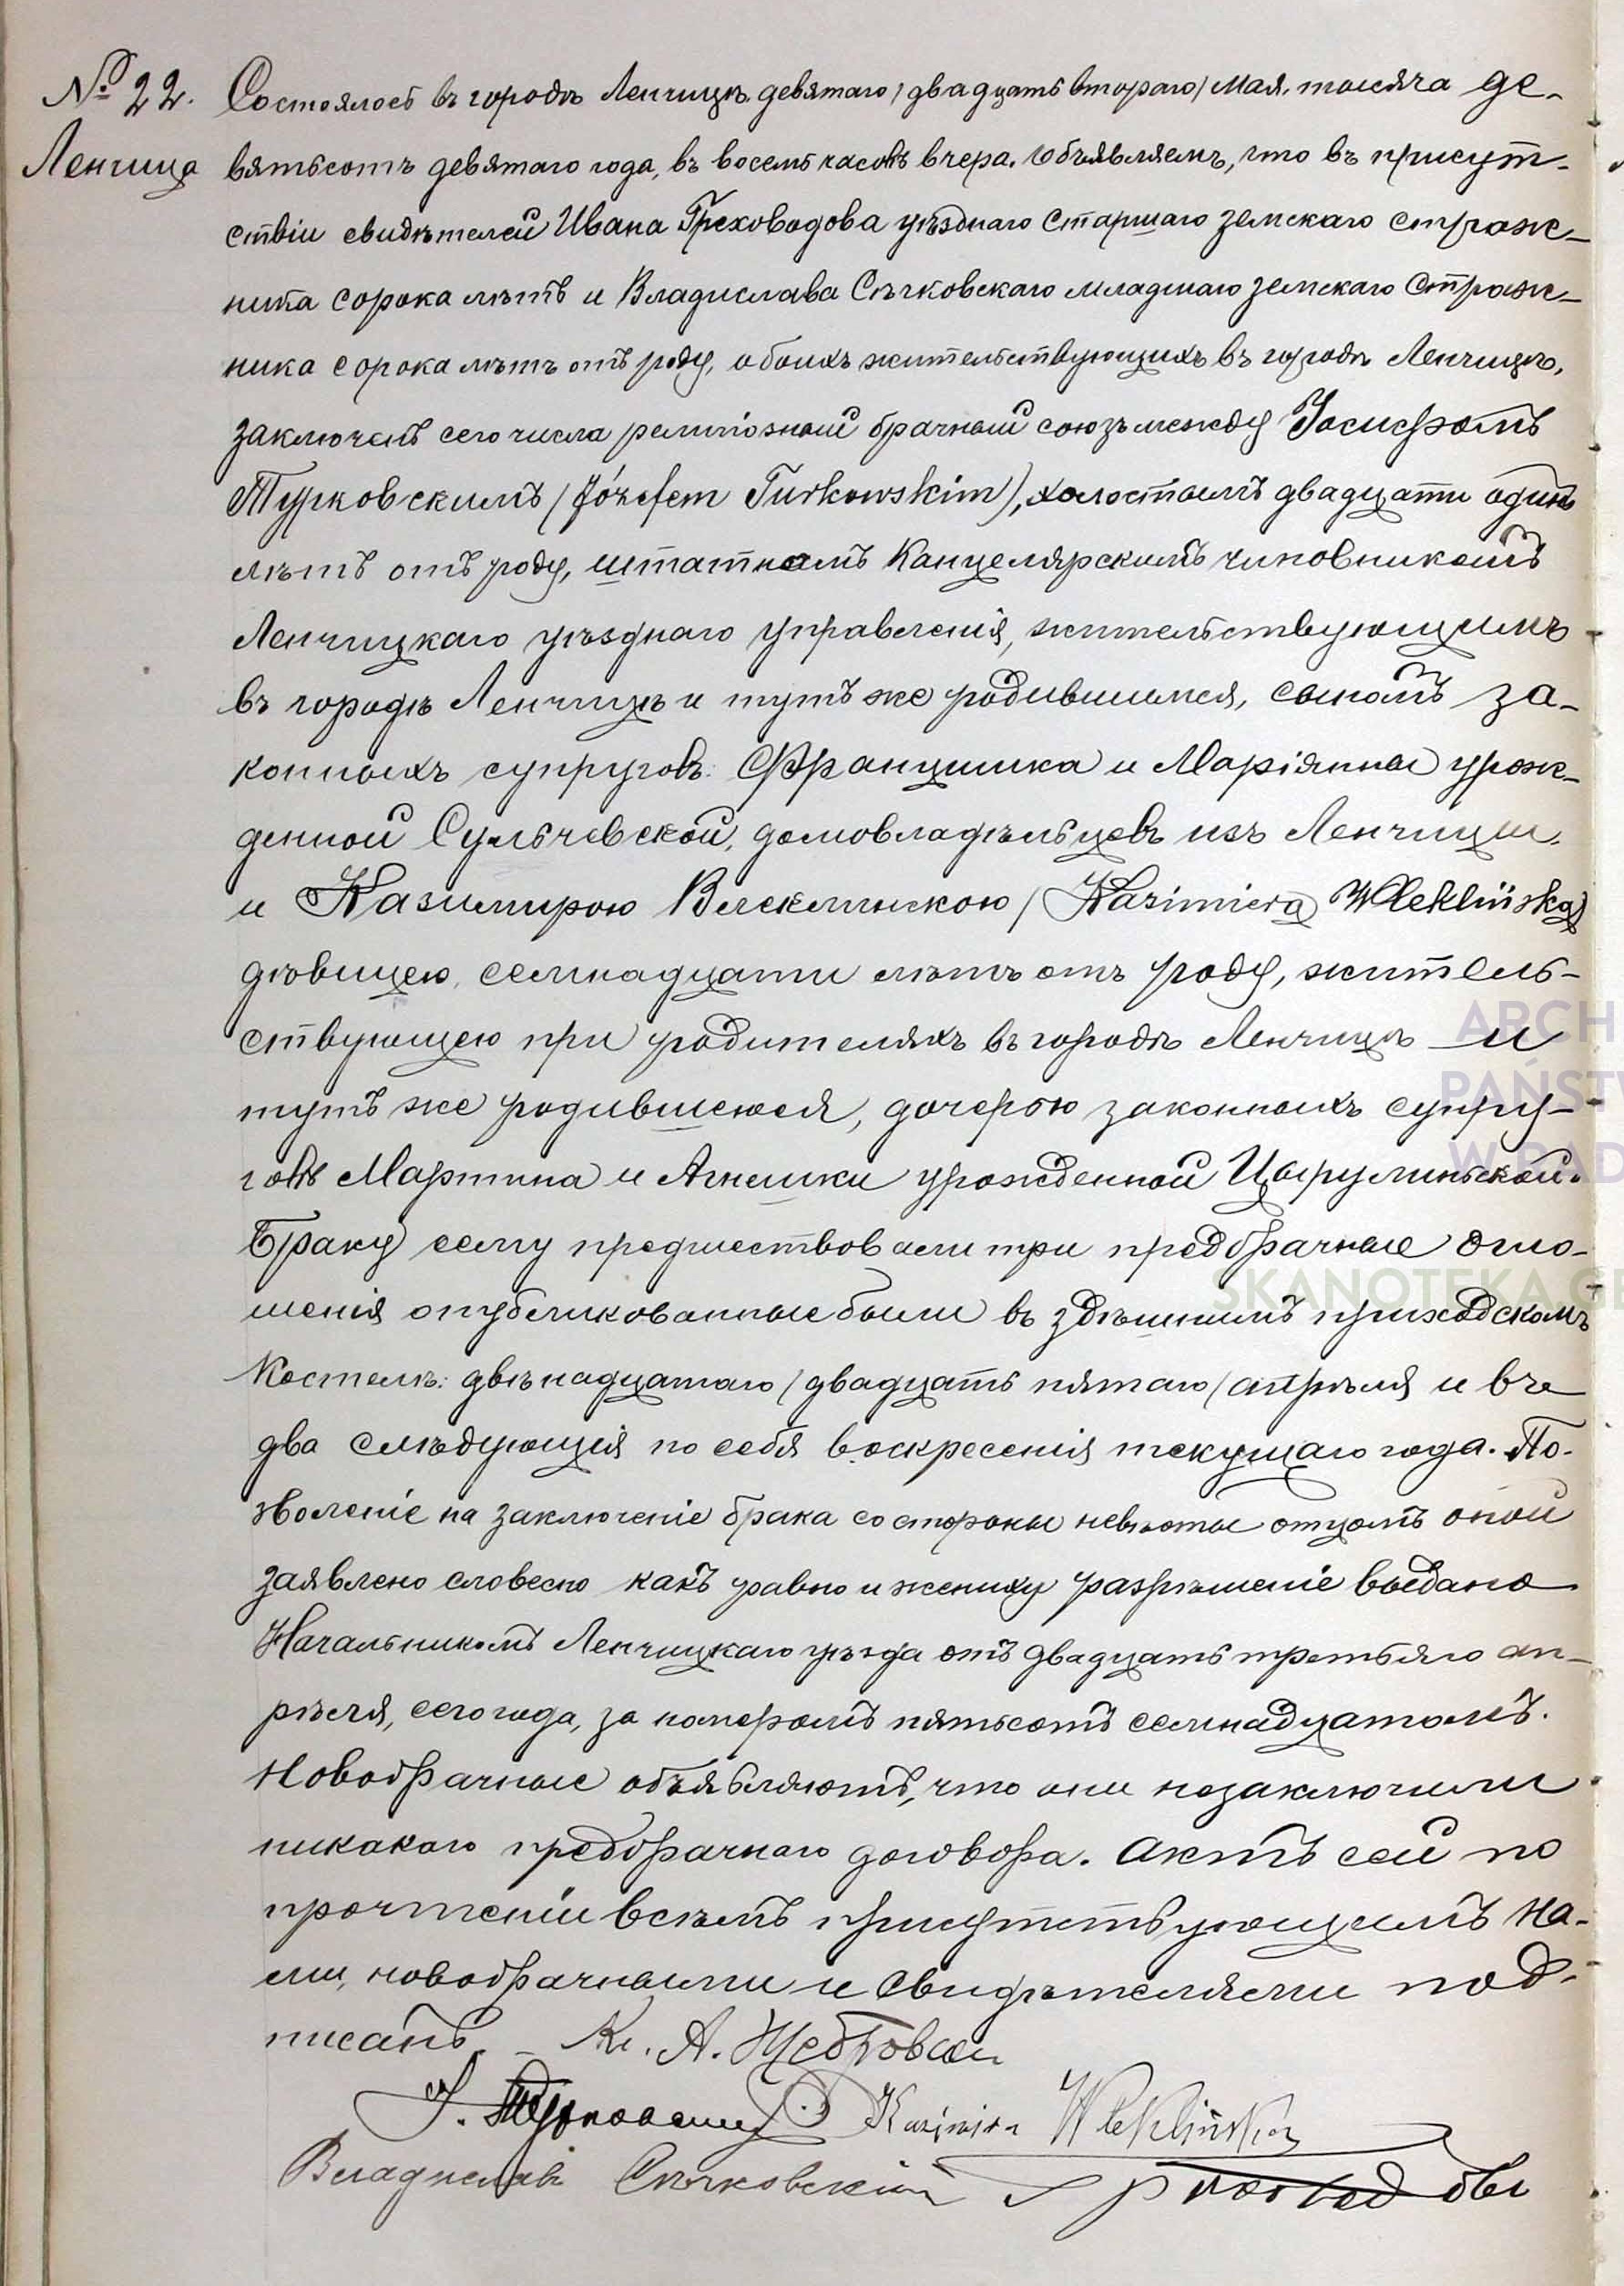 № 22. Состоялось въ городѣ Ленчицѣ, девятаго /двадцать втораго/ Мая, тысяча де-
Ленчица вятьсотъ девятаго года, въ восемь часовъ вчера. Объявляемъ, что въ присут-
ствіи свидѣтелей Ивана Греховодова уѣзднаго Старшаго земскаго страж-
ника сорока лѣтъ и Владислава Сѣчковскаго младшаго земскаго Страж-
ника сорока лѣтъ отъ роду, обоихъ жительствующихъ въ городѣ Ленчицѣ,
заключенъ сего числа религіозный брачный союзъ между Іосифомъ
Турковскимъ /Józefem Turkowskim/, холостымъ двадцати одинъ
лѣтъ отъ роду, штатнымъ Канцелярскимъ чиновникомъ
Ленчицкаго уѣзднаго управленія, жительствующимъ
въ городѣ Ленчицѣ и тутъ же родившимся, сыномъ за-
конныхъ супруговъ: Францишка и Маріянны урож-
денной Сульчевской, домовладѣльцевъ изъ Ленчицы,
и Казимирою Влеклинскою /Kazimierą Wleklińską/
дѣвицею, семнадцати лѣтъ отъ роду, житель-
ствующею при родителяхъ въ городѣ Ленчицѣ и
тутъ же родившеюся, дочерью законныхъ супру-
говъ Мартина и Агнешки урожденной Цырулинской.
Браку сему предшествовали три предбрачные огло-
шенія опубликованные были въ здѣшнимъ приходскомъ
Костелѣ: двѣнадцатаго /двадцать пятаго/ апрѣля и въ
два слѣдующія по себя воскресенія текущаго года. По-
зволеніе на заключеніе брака со стороны невѣсты отцомъ оной
заявлено словесно какъ равно и жениху разрѣшеніе выдано
Начальникомъ Ленчицкаго уѣзда отъ двадцать третьяго ап-
рѣля, сего года, за номеромъ пятьсотъ семнадцатымъ.
Новобрачные объявляютъ, что они незаключили
никакого предбрачнаго договора. Актъ сей по
прочтеніи всѣмъ присутствующимъ на-
ми, новобрачными и свидѣтелями под-
писанъ. Кс. А.
І. Турковскій Kazimiera Wleklińska
Владиславъ Сѣчковскій Греховодовъ
ARCH
PAŃSTW
W RAD
SKANOTEKA.GE